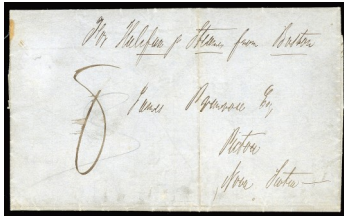 Per Halifax p Steamer from Boston
8
James Primrose Esq
Pictou
Nova Scotia